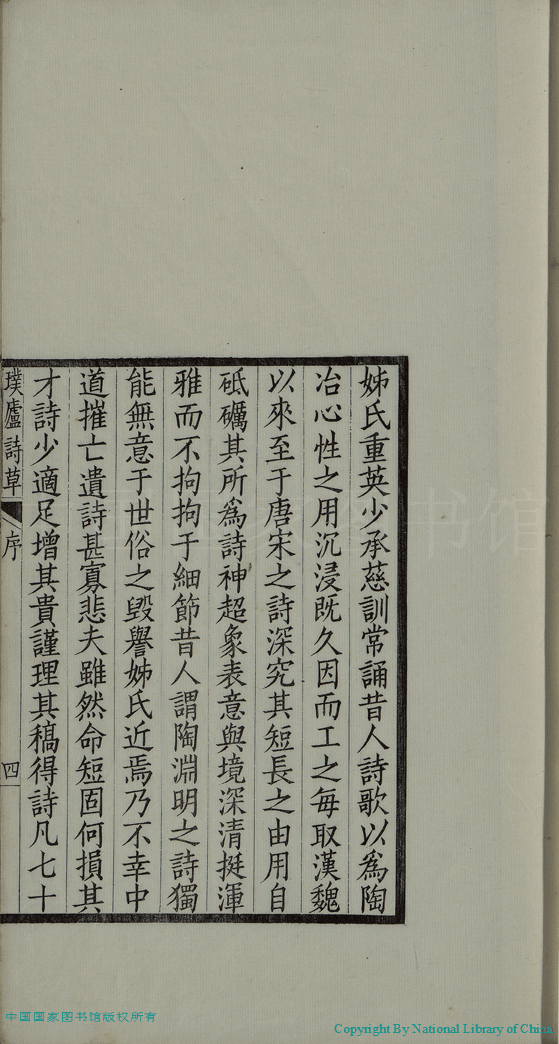 姊氏重英少承慈訓常誦昔人詩歌以為陶
冶心性之用沉浸既久因而工之每取漢魏
以來至于唐宋之詩深究其短長之由用自
砥礪其所為詩神超象表意與境深清挺渾
雅而不拘拘于細節昔人謂陶淵明之詩獨
能無意于世俗之毀譽姊氏近焉乃不幸中
道摧亡遺詩甚寡悲夫雖然命短固何損其
才詩少適足增其貴謹理其稿得詩凡七十
璞廬詩草 序 四
中国国家图书馆版权所有
Copyright By National Library of China